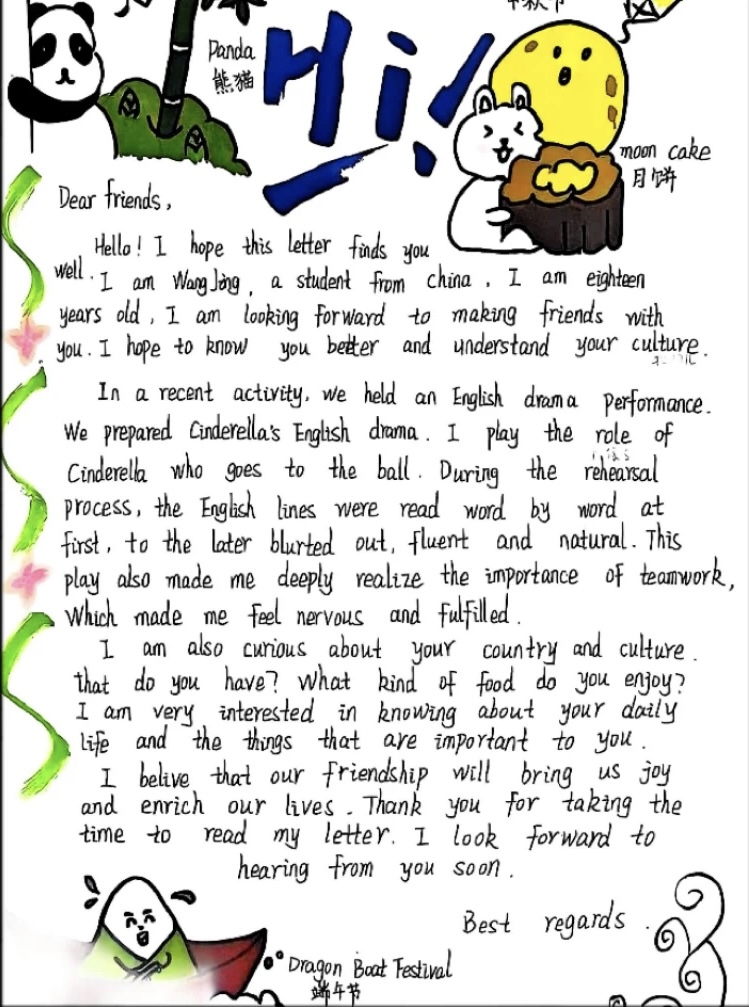 Panda
熊猫
Hi!
moon cake
月饼
Dear friends,
Hello! I hope this letter finds you
well. I am Wang Jing, a student from china. I am eighteen
years old, I am looking forward to making friends with
you. I hope to know you better and understand your culture.
In a recent activity, we held an English drama performance.
We prepared Cinderella's English drama. I play the role of
Cinderella who goes to the ball. During the rehearsal
process, the English lines were read word by word at
first, to the later blurted out, fluent and natural. This
play also made me deeply realize the importance of teamwork,
Which made me feel nervous and fulfilled.
I am also curious about your country and culture.
that do you have? What kind of food do you enjoy?
I am very interested in knowing about your daily
life and the things that are important to you.
I belive that our friendship will bring us joy
and enrich our lives. Thank you for taking the
time to read my letter. I look forward to
hearing from you soon.
Best regards.
Dragon Boat Festival
端午节